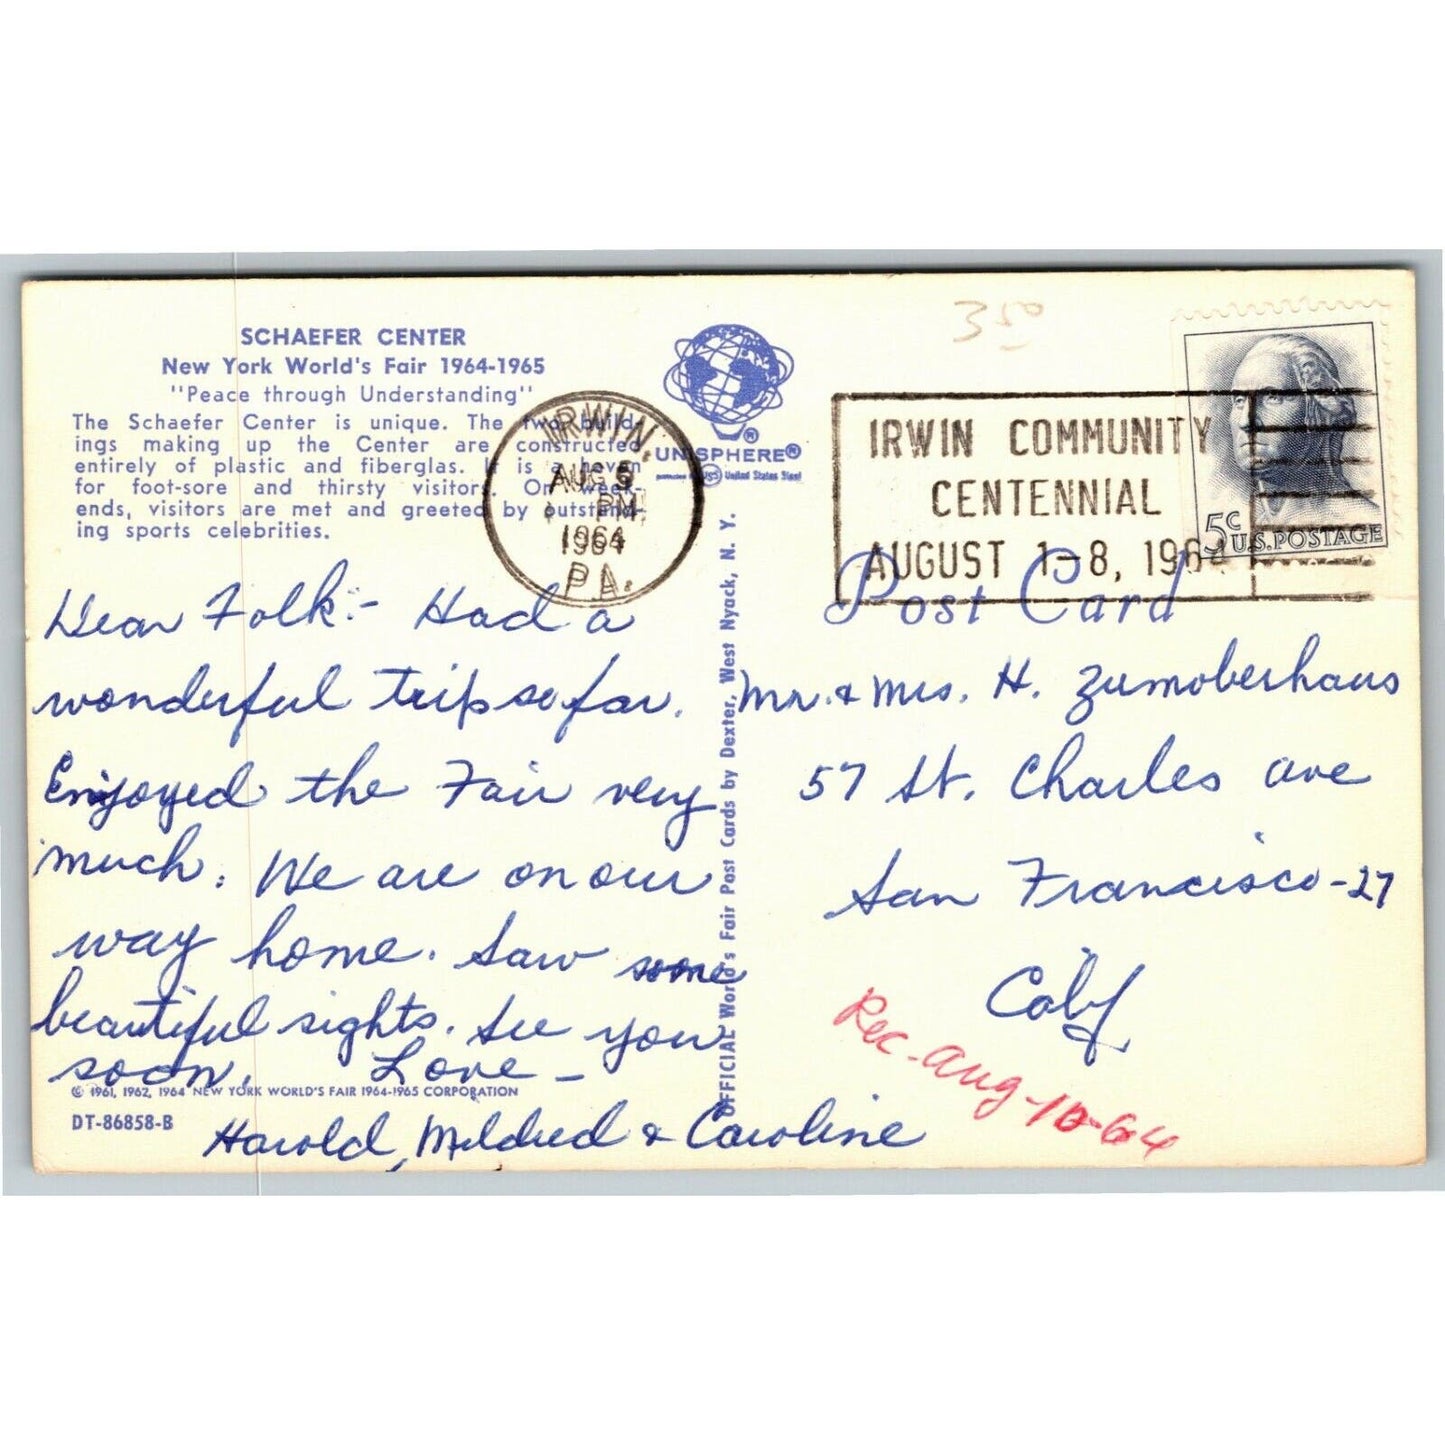 SCHAEFER CENTER
New York World's Fair 1964-1965
"Peace through Understanding"
The Schaefer Center is unique. The two build-
ings making up the Center are constructed
entirely of plastic and fiberglas. It is a haven
for foot-sore and thirsty visitors. On week-
ends, visitors are met and greeted by outstand-
ing sports celebrities.
Dear Folk:- Had a
wonderful trip so far.
Enjoyed the Fair very
much. We are on our
way home. Saw some
beautiful sights. See you
soon. Love -
© 1961, 1962, 1964 NEW YORK WORLD'S FAIR 1964-1965 CORPORATION
DT-86858-B
Harold, Mildred & Caroline
UNISPHERE®
USS United States Steel
IRWIN,
AUG 5
PM
1964
PA.
OFFICIAL World's Fair Post Cards by Dexter, West Nyack, N. Y.
350
IRWIN COMMUNITY
CENTENNIAL
AUGUST 1-8, 1964
5c
U.S. POSTAGE
Post Card
Mr. & Mrs. H. Zumoberhaus
57 St. Charles ave
San Francisco - 27
Calif
Rec - Aug - 10 - 64